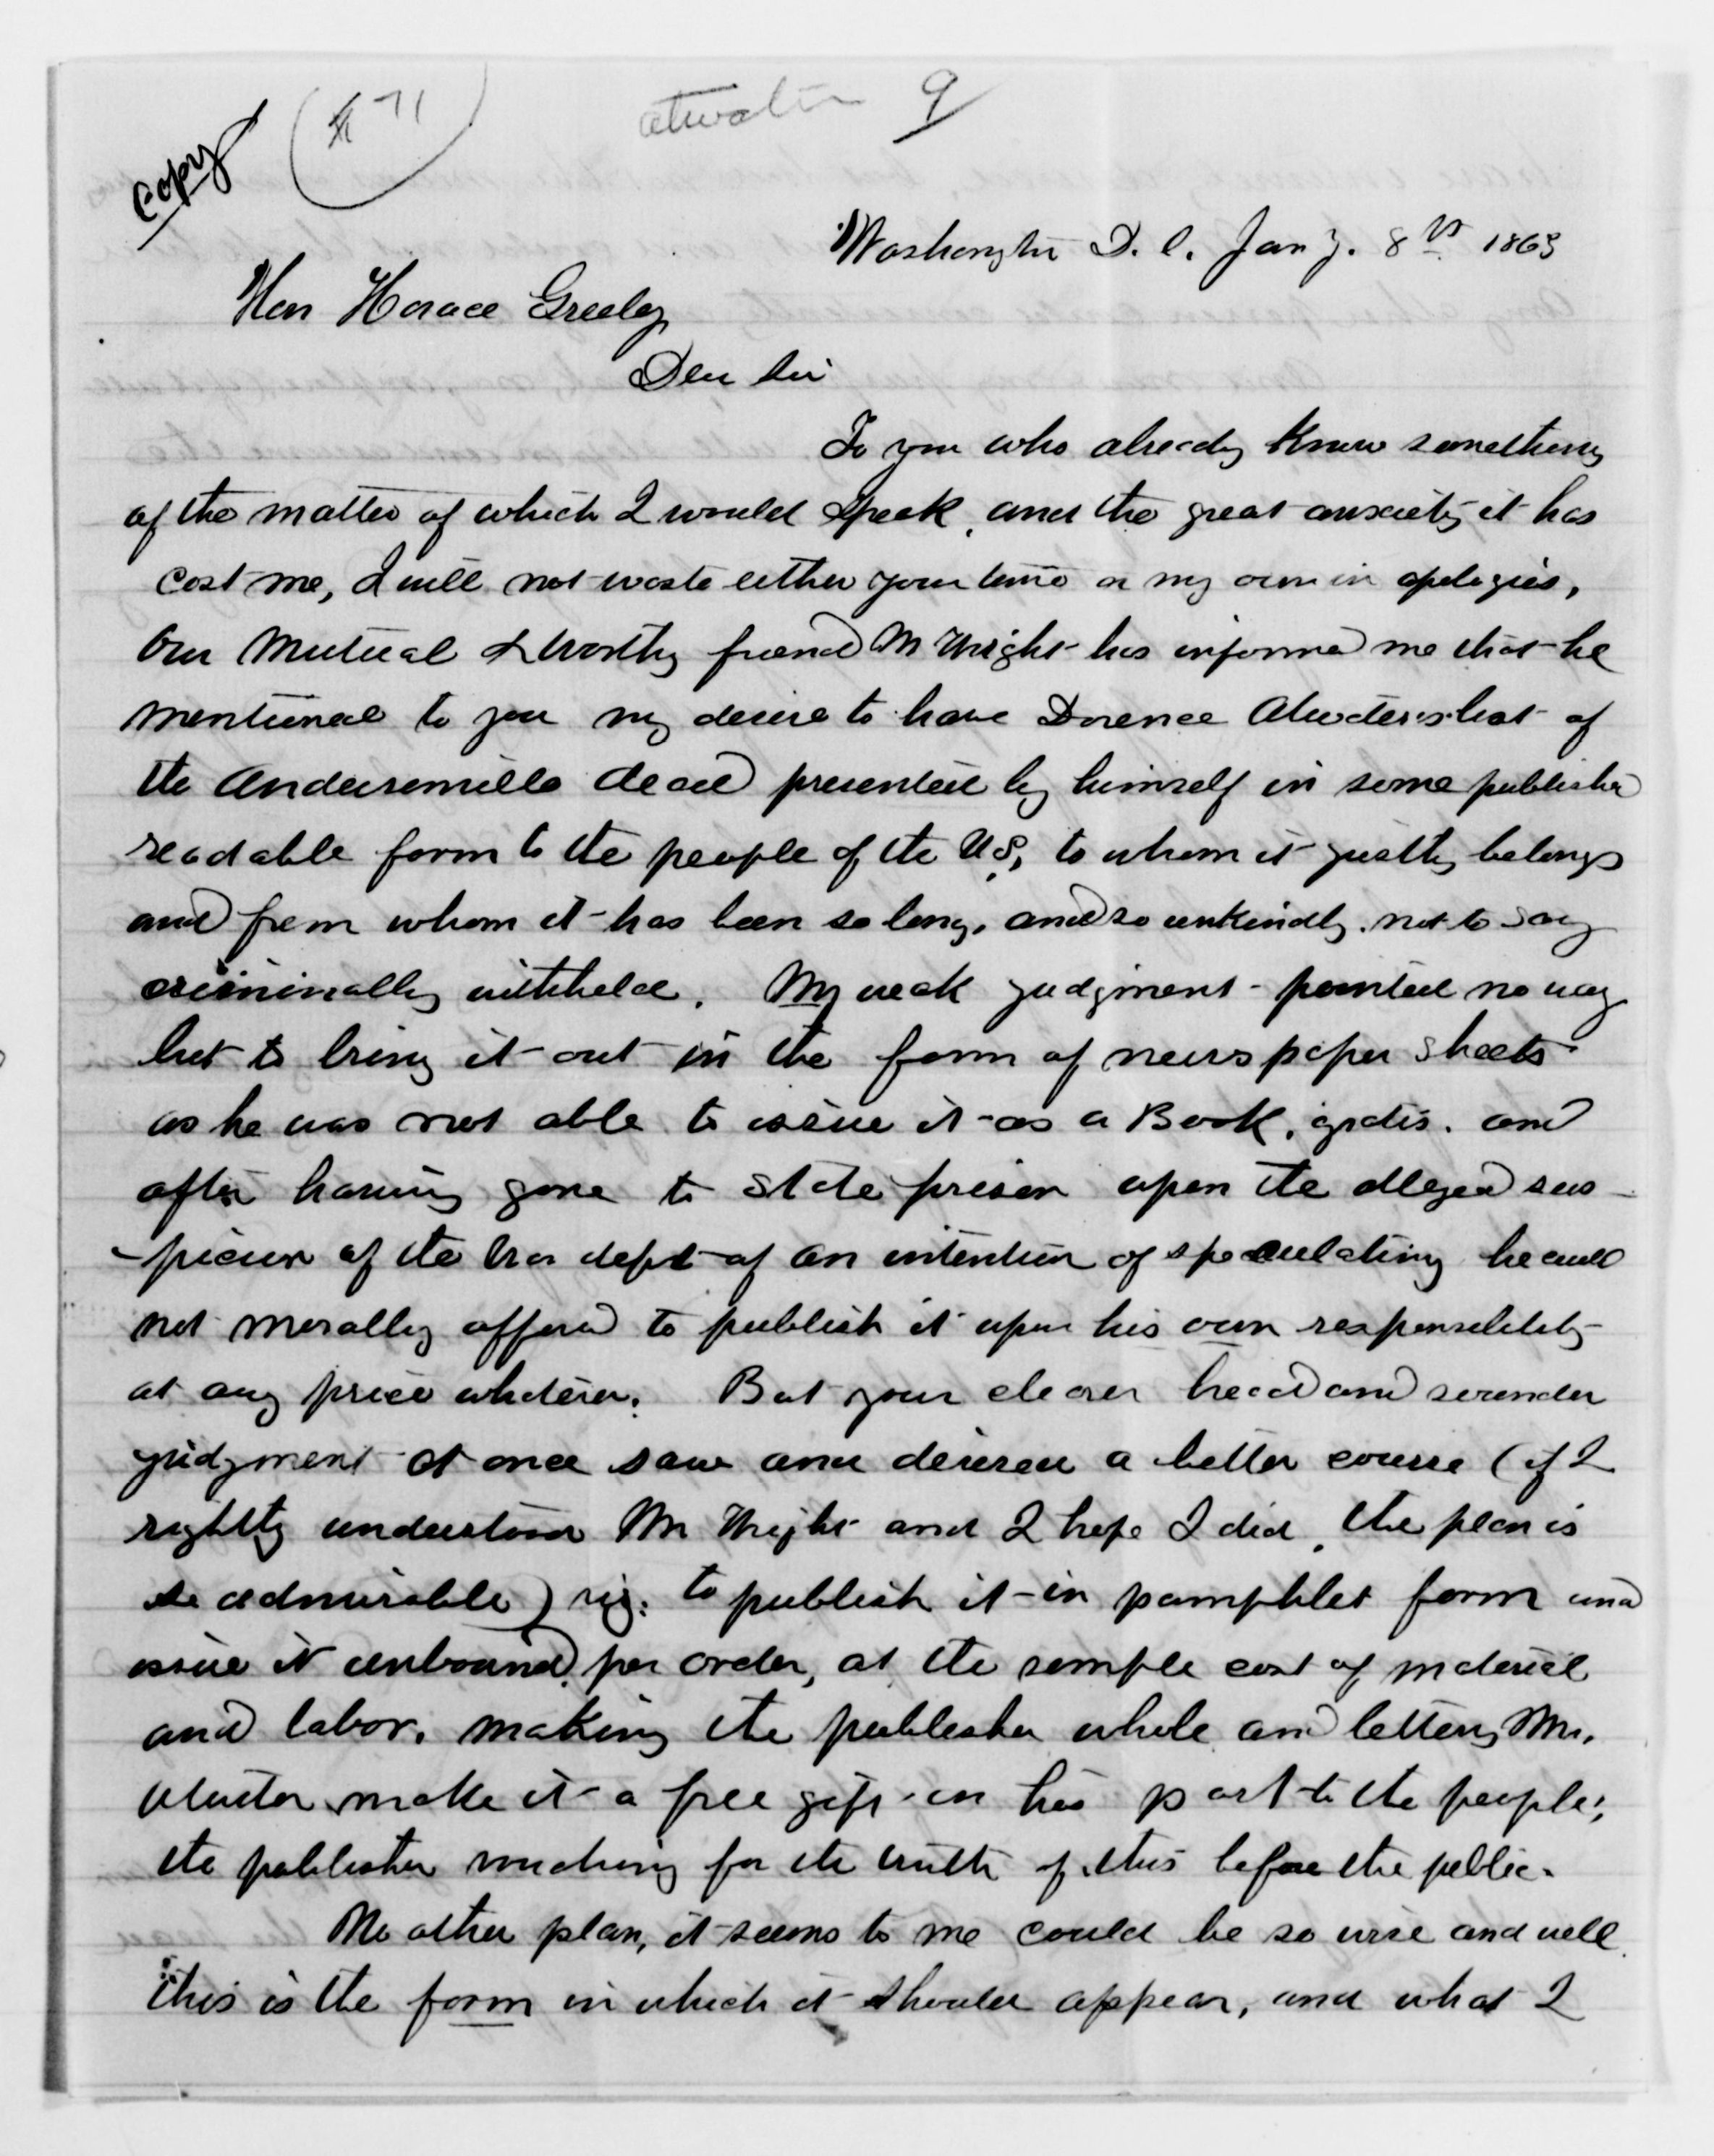 Copy
atwater 9
Washington D. C. Jany. 8th 1865
Hon Horace Greeley
Dear Sir
To you who already know something
of the matter of which I would speak, and the great anxiety it has
cost me, I will not waste either your time or my own in apologies,
Our Mutual & worthy friend Mr Wright has informed me that he
mentioned to you my desire to have Dorence Atwaters list of
the Andersonville dead presented by himself in some published
readable form to the people of the U.S, to whom it justly belongs
and from whom it has been so long, and so unkindly, not to say
criminally withheld. My weak judgment pointed no way
but to bring it out in the form of newspaper sheets
as he was not able to issue it as a Book, gratis. and
after having gone to state prison upon the alleged sus-
-picion of the War dept of an intention of speculating he could
not morally afford to publish it upon his own responsibility
at any price whatever. But your clearer head and sounder
judgment at once saw and devised a better course (if I
rightly understood Mr Wright and I hope I did, the plan is
so admirable) viz: to publish it in pamphlet form and
issue it unbound, per order, at the simple cost of material
and labor, making the publisher whole and letting Mr.
Atwater make it a free gift on his part to the people;
the publisher vouching for the truth of this before the public.
No other plan, it seems to me could be so wise and well
this is the form in which it should appear, and what I